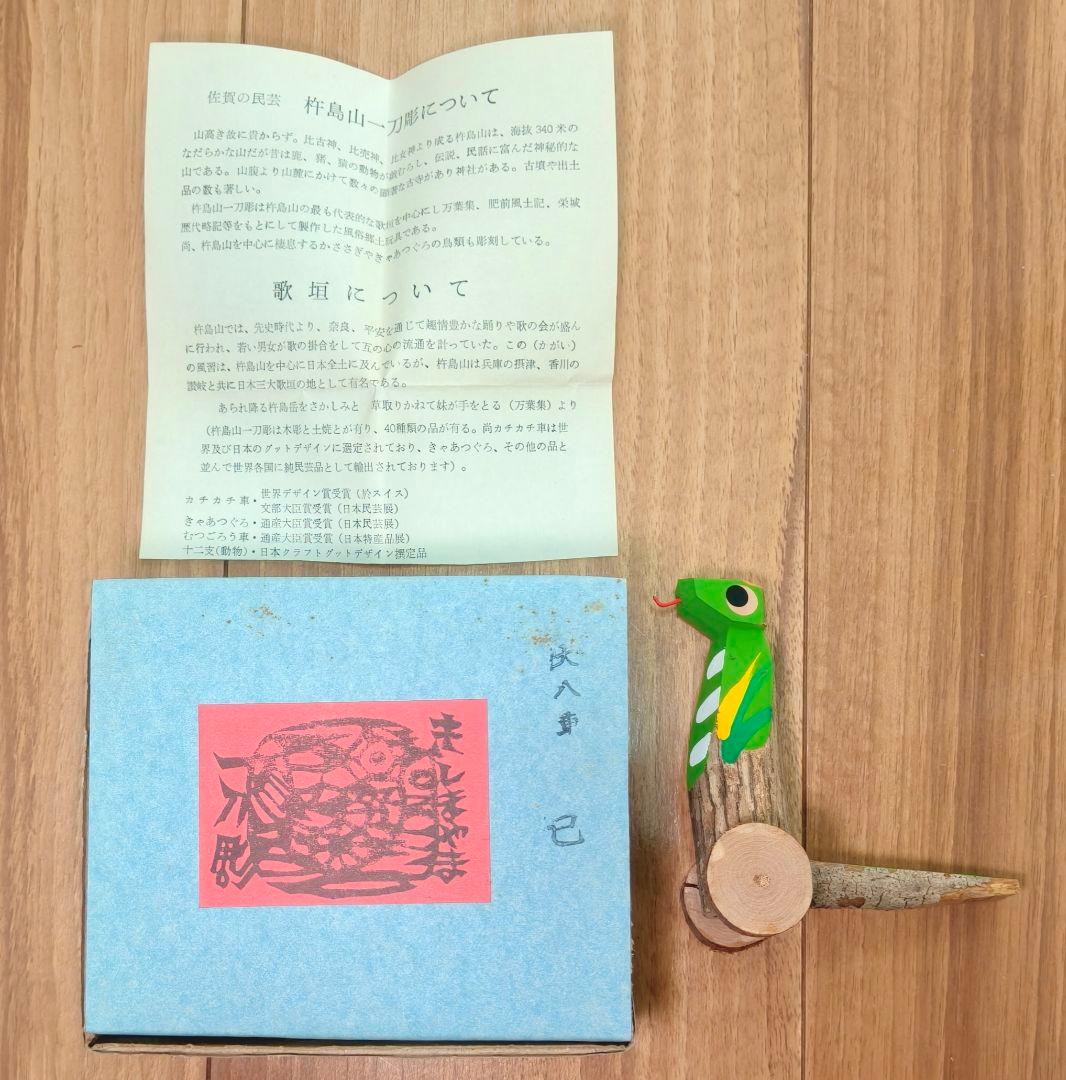 佐賀の民芸　杵島山一刀彫について
山高き故に貴からず。比古神、比売神、比女神より成る杵島山は、海抜340米の
なだらかな山だが昔は鹿、猪、猿の動物が遊むろし、伝説、民話に富んだ神秘的な
山である。山腹より山麓にかけて数々の顕著な古寺があり神社がある。古墳や出土
品の数も著しい。
杵島山一刀彫は杵島山の最も代表的な歌垣を中心にし万葉集、肥前風土記、栄城
歴代略記等をもとにして製作した風俗郷土玩具である。
尚、杵島山を中心に棲息するかささぎやきゃあつぐろの鳥類も彫刻している。
歌垣について
杵島山では、先史時代より、奈良、平安を通じて趣情豊かな踊りや歌の会が盛ん
に行われ、若い男女が歌の掛合をして互の心の流通を計っていた。この（かがい）
の風習は、杵島山を中心に日本全土に及んでいるが、杵島山は兵庫の摂津、香川の
讃岐と共に日本三大歌垣の地として有名である。
あられ降る杵島岳をさかしみと　草取りかねて妹が手をとる（万葉集）より
（杵島山一刀彫は木彫と土焼とが有り、40種類の品が有る。尚カチカチ車は世
界及び日本のグットデザインに選定されており、きゃあつぐろ、その他の品と
並んで世界各国に純民芸品として輸出されております）。
カチカチ車・世界デザイン賞受賞（於スイス）
文部大臣賞受賞（日本民芸展）
きゃあつぐろ・通産大臣賞受賞（日本民芸展）
むつごろう車・通産大臣賞受賞（日本特産品展）
十二支（動物）・日本クラフトグットデザイン撰定品
八車
巳
きしまやま
一刀彫